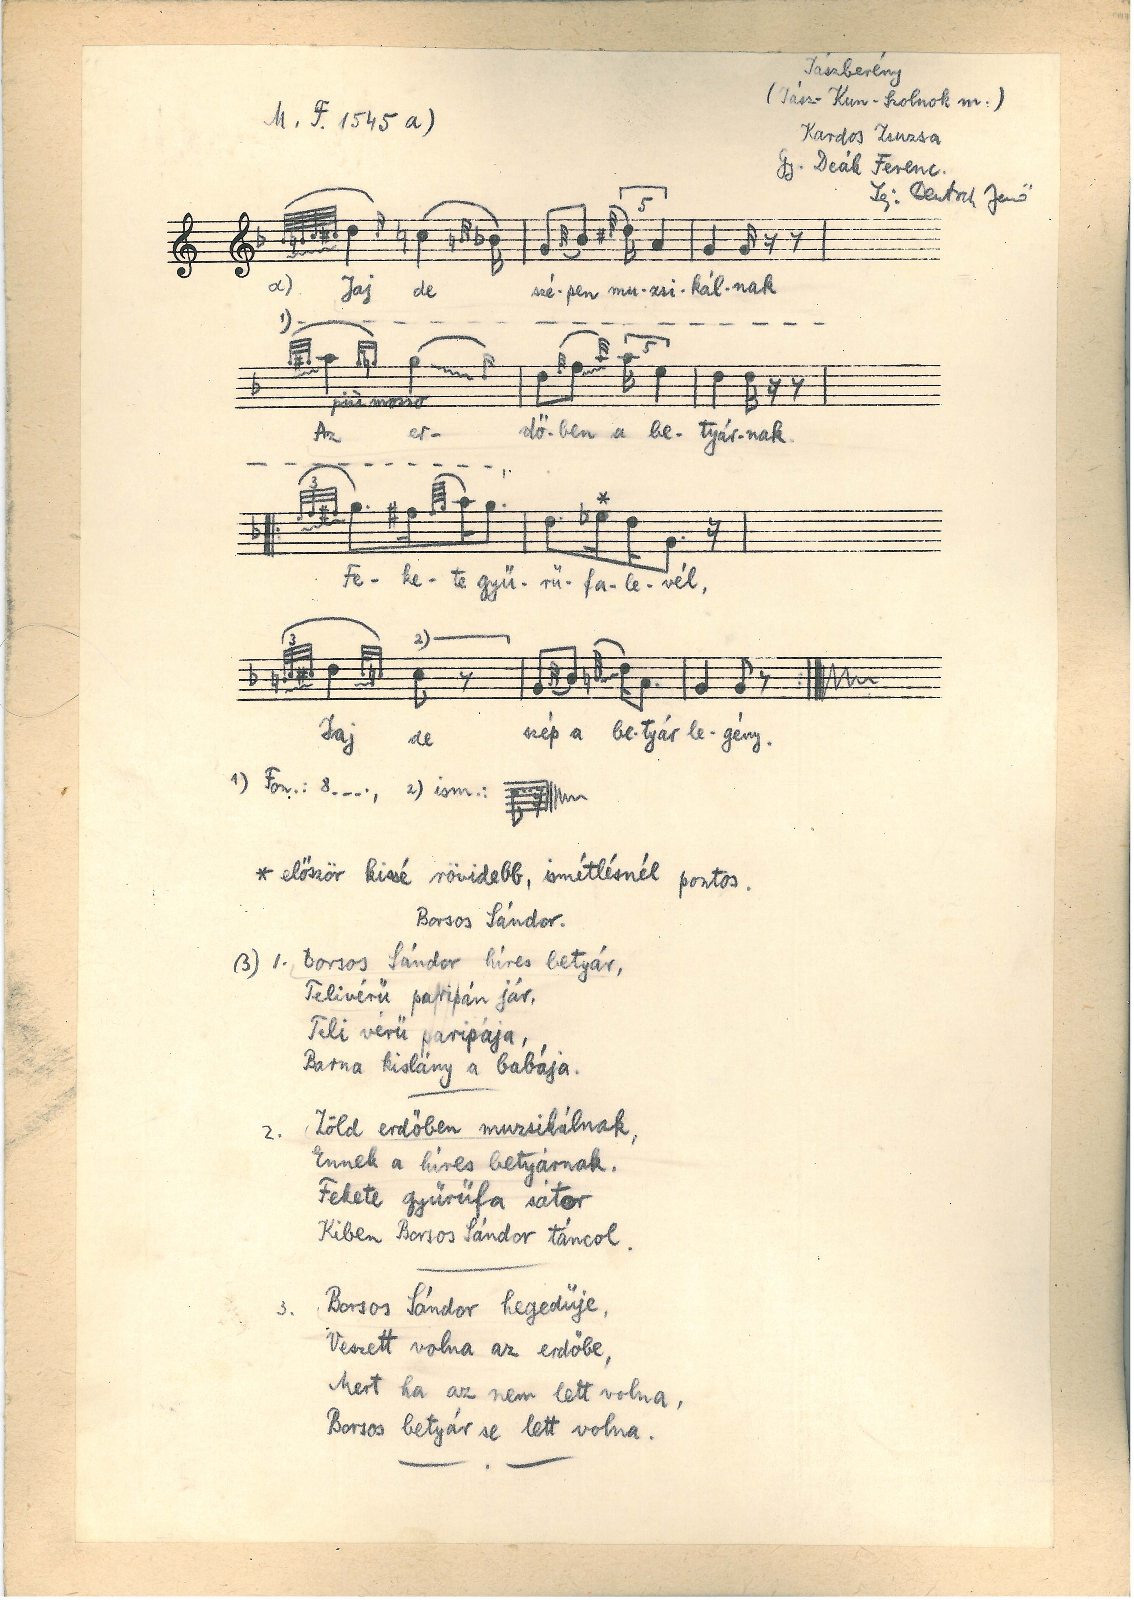 Jászberény
(Jász-Kun-Szolnok m.)
M. F. 1545 a)
Kardos Zsuzsa
Gy. Deák Ferenc.
Lej: Deutsch Jenő
5
α) Jaj de szé-pen mu-zsi-kál-nak
1)
5
più mosso
Az er- dő-ben a be- tyár-nak.
3
*
Fe- ke- te gyű- rű- fa- le- vél,
3 2)
Jaj de szép a be-tyár le- gény.
1) Fon.: 8----, 2) ism.:
* először kissé rövidebb, ismétlésnél pontos.
Borsos Sándor.
β) 1. Borsos Sándor híres betyár,
Telivérű paripán jár,
Teli vérű paripája,
Barna kislány a babája.
2. Zöld erdőben muzsikálnak,
Ennek a híres betyárnak.
Fekete gyürüfa sátor
Kiben Borsos Sándor táncol.
3. Borsos Sándor hegedüje,
Veszett volna az erdőbe,
Mert ha az nem lett volna,
Borsos betyár se lett volna.